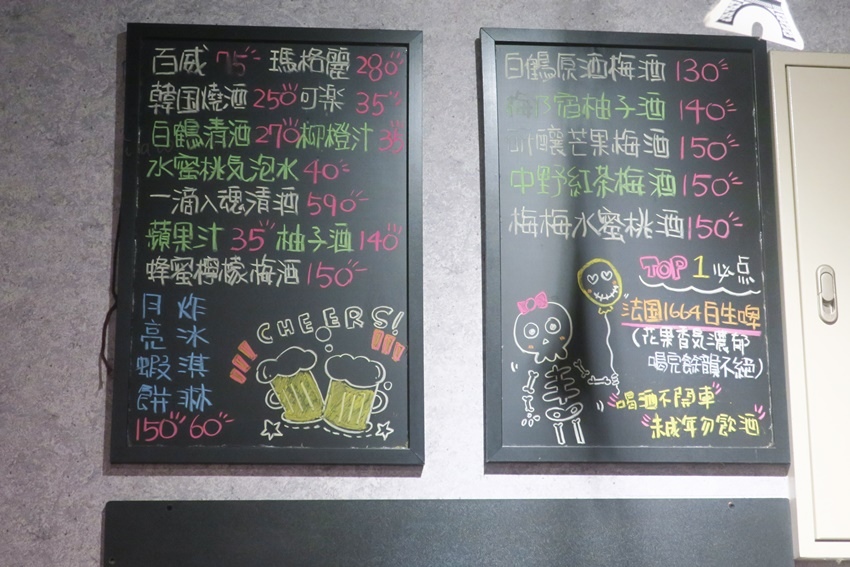 百威 75 瑪格麗 280
韓国燒酒 250 可楽 35
白鶴清酒 270 柳橙汁 35
水蜜桃気泡水 40
一滴入魂清酒 590
蘋果汁 35 柚子酒 140
蜂蜜檸檬梅酒 150
月亮蝦餅 150
炸冰淇淋 60
CHEERS!
白鶴原酒梅酒 130
宿柚子酒 140
釀芒果梅酒 150
中野紅茶梅酒 150
梅梅水蜜桃酒 150
TOP 1 必点
法国1664白生啤
(花果香気濃郁
喝完餘韻不絕)
喝酒不開車
未成年勿飲酒